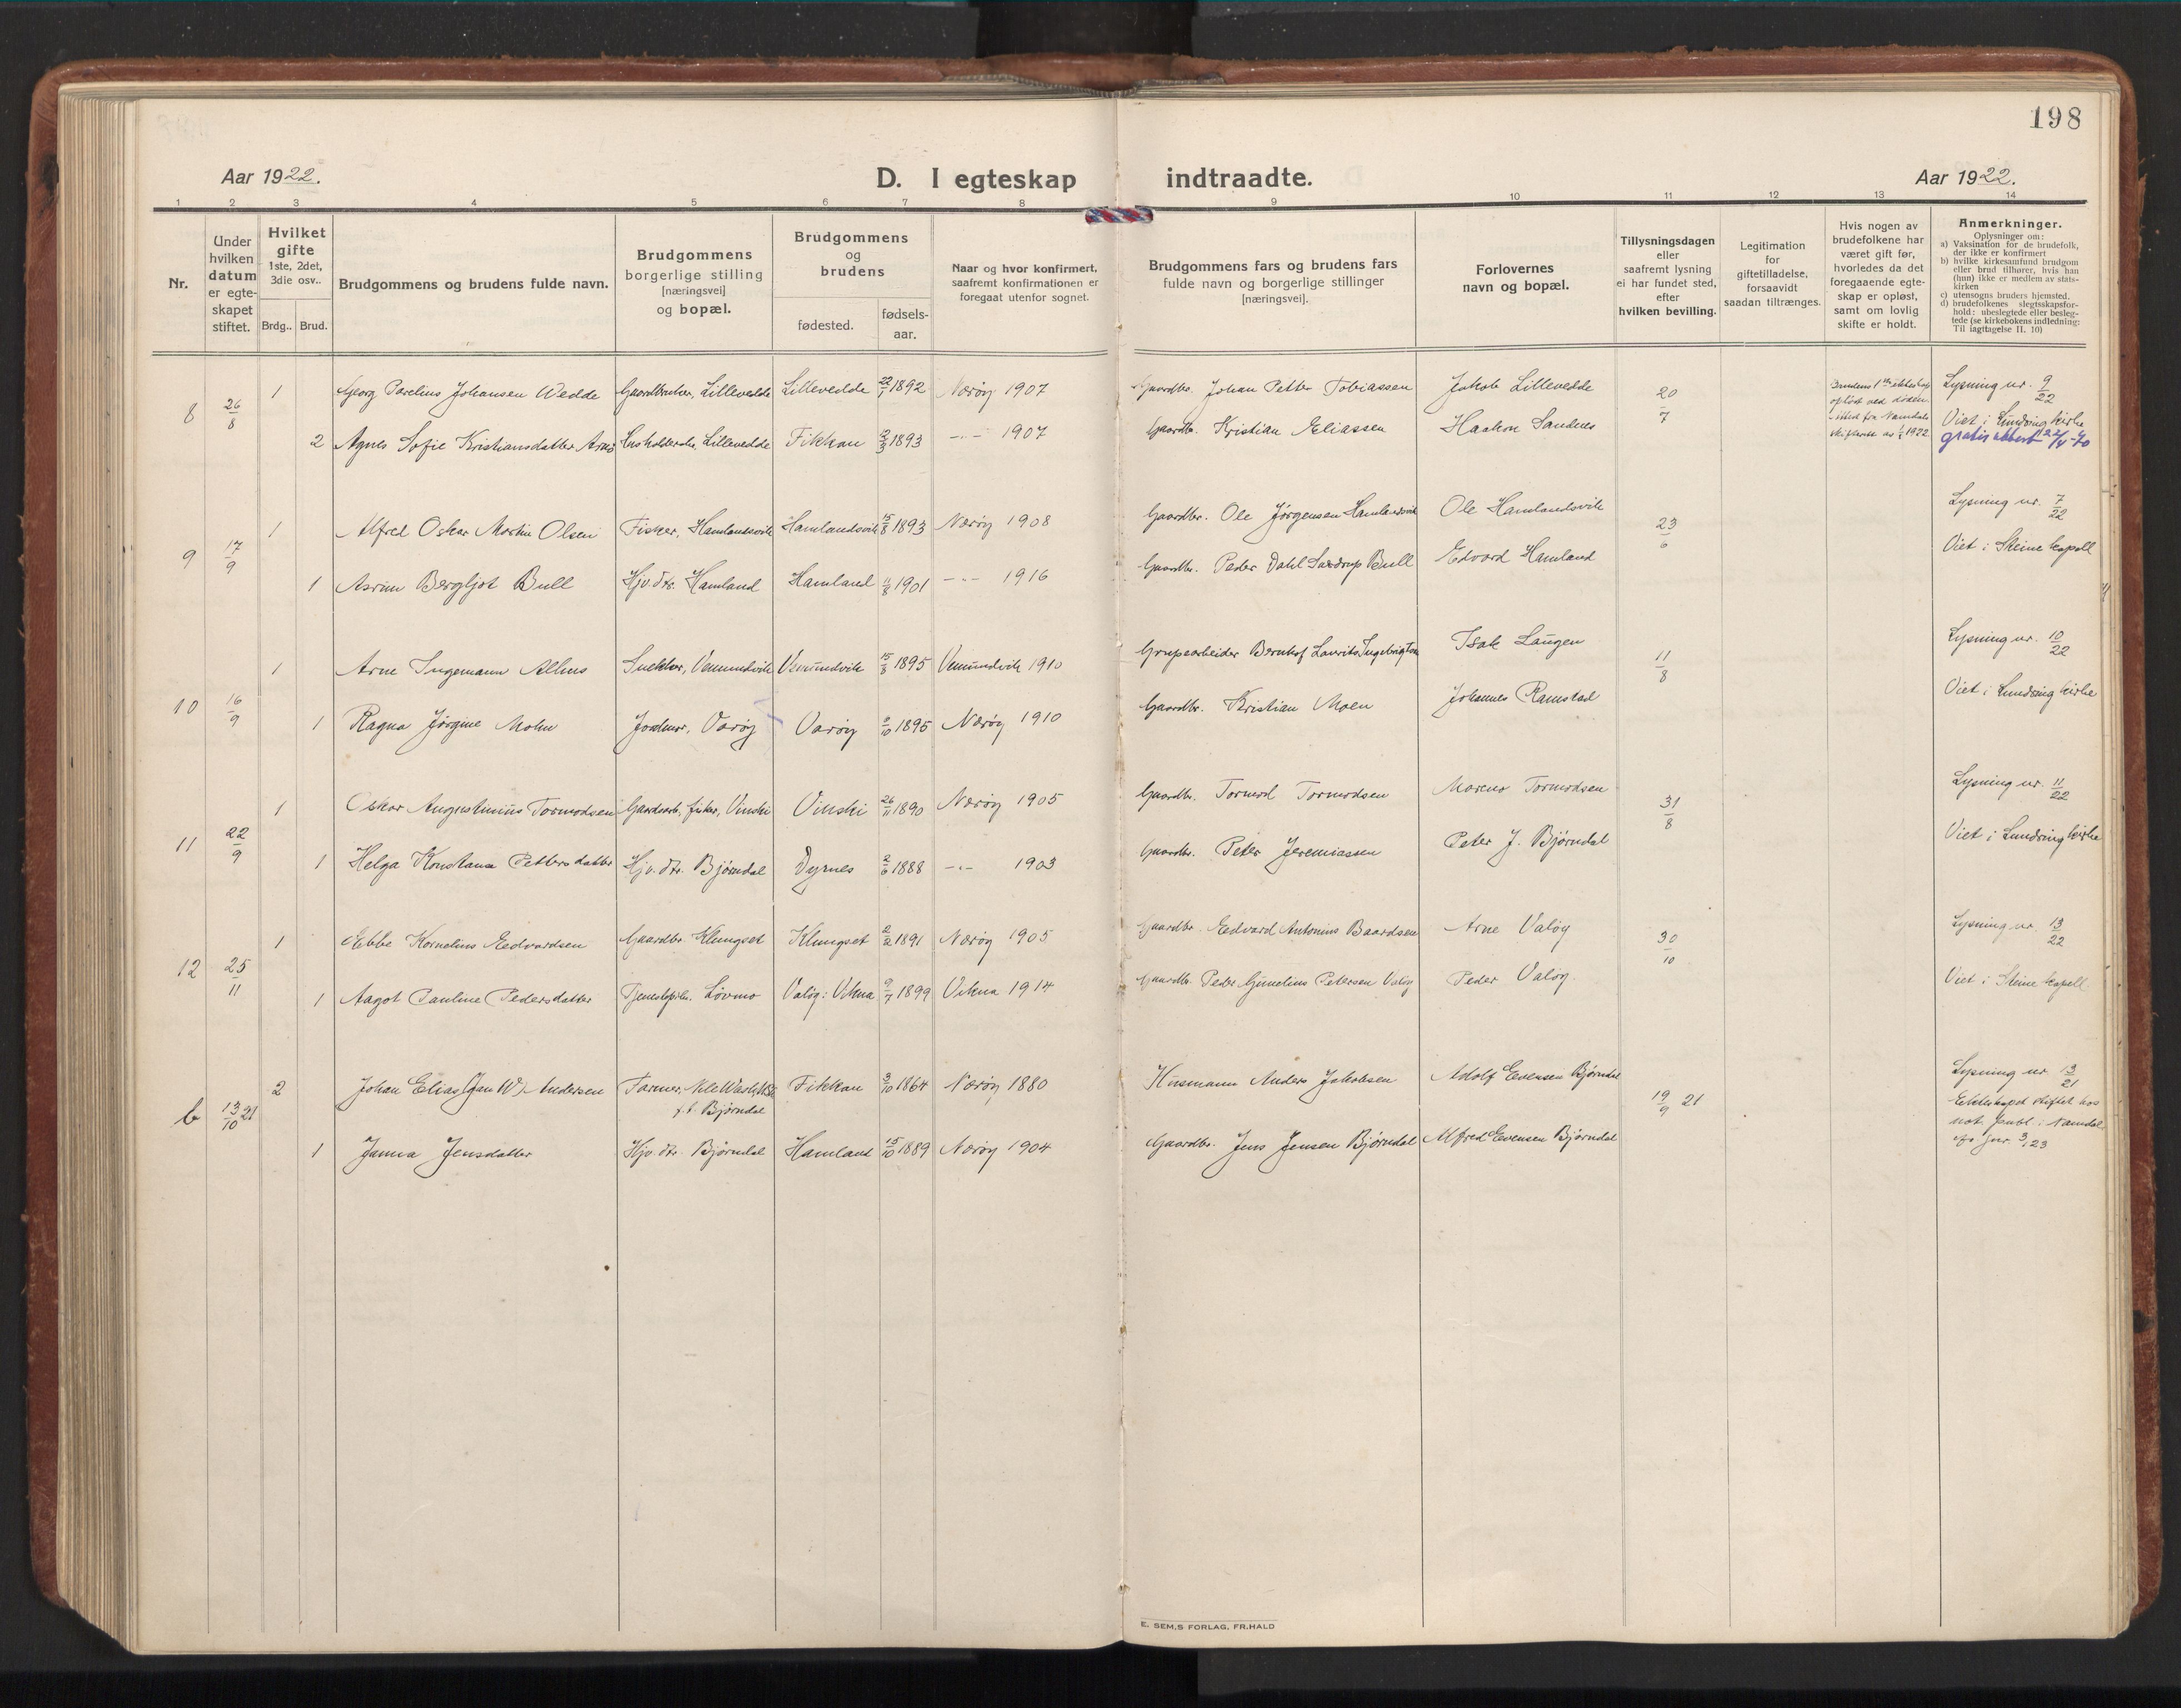 198
Aar 1922.
D. I egteskap indtraadte.
Aar 1922.
1 2 3 4 5 6 7 8 9 10 11 12 13 14
Nr.
Under hvilken datum er egte-skapet stiftet.
Hvilket gifte
1ste, 2det, 3die osv..
Brdg.. Brud.
Brudgommens og brudens fulde navn.
Brudgommens borgerlige stilling [næringsvei] og bopæl.
Brudgommens og brudens
fødested.
fødsels-aar.
Naar og hvor konfirmert, saafremt konfirmationen er foregaat utenfor sognet.
Brudgommens fars og brudens fars fulde navn og borgerlige stillinger [næringsvei].
Forlovernes navn og bopæl.
Tillysningsdagen eller saafremt lysning ei har fundet sted, efter hvilken bevilling.
Legitimation for giftetilladelse, forsaavidt saadan tiltrænges.
Hvis nogen av brudefolkene har været gift før, hvorledes da det foregaaende egte-skap er opløst, samt om lovlig skifte er holdt.
Anmerkninger.
Oplysninger om:
a) Vaksination for de brudefolk, der ikke er konfirmert
b) hvilke kirkesamfund brudgom eller brud tilhører, hvis han (hun) ikke er medlem av stats-kirken
c) utensogns bruders hjemsted.
d) brudefolkenes slegtsskapsfor-hold: ubeslegtede eller besleg-tede (se kirkebokens indledning: Til iagttagelse II. 10)
8 26/8
1 Georg Parelius Johansen Wedde Gaardbruker, Lillevedde Lillevedde 22/7 1892 Nærøy 1907 Gaardbr. Johan Petter Tobiassen Jakob Lillevedde 20/7 Lysning nr. 9/22
2 Agnes Sofie Kristiansdatter Lillevedde Fikkan 1893 -"- 1907 Gaardbr. Kristian Eliassen Haakon Sandnes Viet i Lundring kirke
9 17/9
1 Alfred Oskar Martin Olsen Fisker, Hamlandsvik Hamlandsvik 15/8 1893 Nærøy 1908 Gaardbr. Ole Jørgensen Hamlandsvik Ole Hamlandsvik 23/6 Lysning nr. 7/22
1 Bergljot Bull Hjv. dtr. Hamland Hamland 11/8 1901 -"- 1916 Gaardbr. Peder Dahl Bull Edvard Hamland Viet i Steine kapell
10 16/9
1 Arne Ingemann Snekker, Vemundvik Vemundvik 15/8 1895 Vemundvik 1910 Grupearbeider Laurits Isak Laugen 11/8 Lysning nr. 10/22
1 Ragna Jørgine Moen Jordmor, Varøy Varøy 1895 Nærøy 1910 Gaardbr. Kristian Moen Johannes Ramstad Viet i Lundring kirke
11 22/9
1 Oskar Augustinius Tormodsen Gaardsarb., fisker, Vinski Vinski 26/11 1890 Nærøy 1905 Gaardbr. Tormod Tormodsen Tormodsen 31/8 Lysning nr. 11/22
1 Helga Konstanse Pettersdatter Hjv. dtr. Bjørndal Dyrnes 2/6 1888 -"- 1903 Gaardbr. Peter Jeremiassen Peter J. Bjørndal Viet i Lundring kirke
12 25/11
1 Ebbe Kornelius Eedvardsen Gaardbr. Klungset Klungset 1891 Nærøy 1905 Gaardbr. Eedvard Antonius Baardsen Arne Valøy 30/10 Lysning nr. 13/22
1 Aagot Pauline Pedersdatter Løvmo Valøy i Vikna 9/7 1899 Vikna 1914 Gaardbr. Peder Petersen Valøy Peder Valøy Viet i Steine kapell
b 13/10 21
2 Johan Elias (Jan W). Andersen Farmer,
f.t. Bjørndal Fikkan 3/10 1864 Nærøy 1880 Husmann Anders Jakobsen Adolf Evensen Bjørndal 19/9 21 Lysning nr. 13/21
Ekteskapet stiftet hos
not. publ. i Namdal
jnr. 3/23
1 Janna Jensdatter Hjv. dtr. Bjørndal Hamland 15/10 1889 Nærøy 1904 Gaardbr. Jens Jensen Bjørndal Alfred Evensen Bjørndal
E. SEM,S FORLAG, FR.HALD